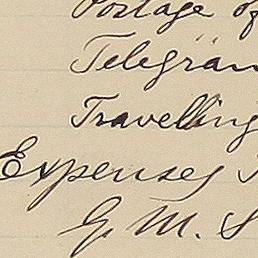 Postage of
Telegram
Travelling
Expenses
G. M. S